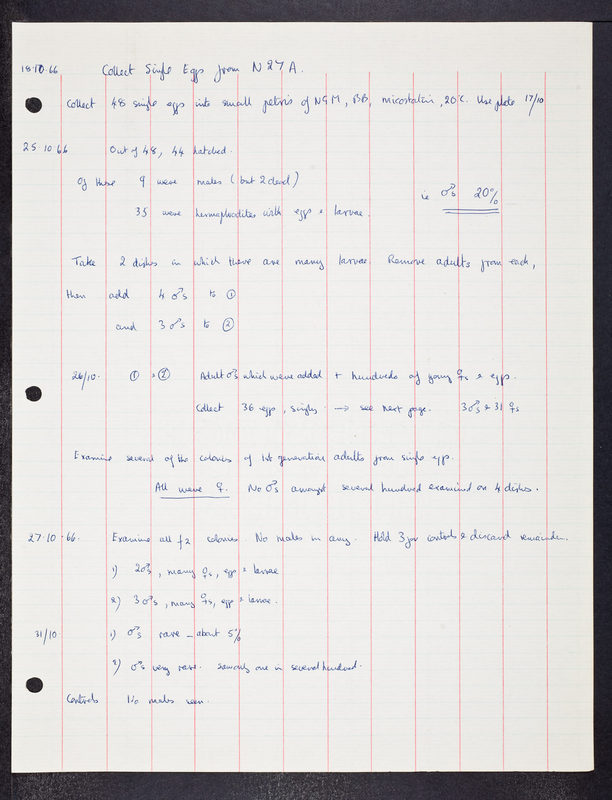 18.10.66 Collect Single Eggs from N27A.
Collect 48 single eggs into small petris of NGM, BB, micostatin, 20°C. Use plate 17/10
25 10 66 Out of 48, 44 hatched.
Of these 9 were males (but 2 dead)
ie ♂s 20%
35 were hermaphrodites with eggs & larvae.
Take 2 dishes in which there are many larvae. Remove adults from each,
then add 4 ♂s to ①
and 3 ♂s to ②
26/10. ① & ② Adult ♂s which were added + hundreds of young ♀s & eggs.
Collect 36 eggs, singles → see next page. 3♂s & 31 ♀s
Examine several of the colonies of 1st generation adults from single eggs.
All were ♀. No ♂s amongst several hundred examined on 4 dishes.
27.10.66. Examine all f2 colonies. No males in any. Hold 3 for controls & discard remainder.
1) 2♂s, many ♀s, eggs & larvae
2) 3♂s, many ♀s, eggs & larvae.
31/10 1) ♂s rare – about 5%
2) ♂s very rare. Saw only one in several hundred.
Controls No males seen.